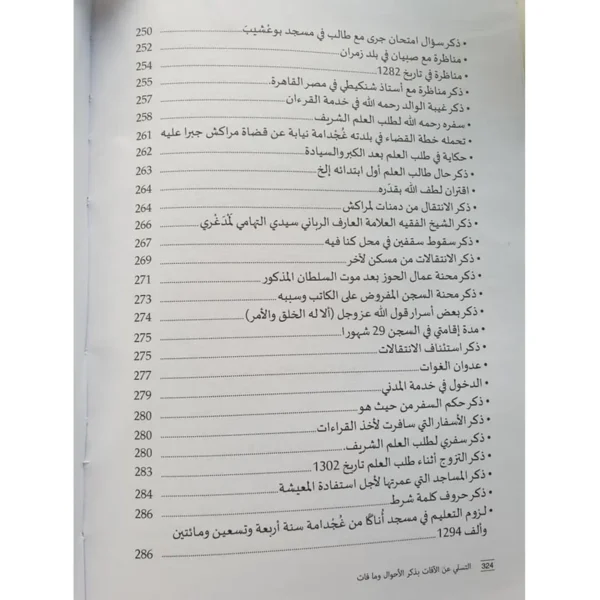 • ذكر سؤال امتحان جرى مع طالب في مسجد بوغشيب 250
• مناظرة مع صبيان في بلد زمران 252
• مناظرة في تاريخ 1282 254
• ذكر مناظرة مع أستاذ شنكيطي في مصر القاهرة 255
• ذكر غيبة الوالد رحمه الله في خدمة القرءان 257
• سفره رحمه الله لطلب العلم الشريف 258
• تحمله خطة القضاء في بلدته غُجْدامة نيابة عن قضاة مراكش جبرا عليه 261
• حكاية في طلب العلم بعد الكبر والسيادة 262
• ذكر حال طالب العلم أول ابتدائه إلخ 263
• اقتران لطف الله بقدَره 264
• ذكر الانتقال من دمنات لمراكش 264
• ذكر الشيخ الفقيه العلامة العارف الرباني سيدي التهامي لَمْدَغْري 266
• ذكر سقوط سقفين في محل كنا فيه 267
• ذكر الانتقالات من مسكن لآخر 269
• ذكر محنة عمال الحوز بعد موت السلطان المذكور 271
• ذكر محنة السجن المفروض على الكاتب وسببه 273
• ذكر بعض أسرار قول الله عز وجل (ألا له الخلق والأمر) 274
• مدة إقامتي في السجن 29 شهورا 275
• ذكر استئناف الانتقالات 275
• عدوان الغوات 277
• الدخول في خدمة المدني 279
• ذكر حكم السفر من حيث هو 280
• ذكر الأسفار التي سافرت لأخذ القراءات 280
• ذكر سفري لطلب العلم الشريف 280
• ذكر التزوج أثناء طلب العلم تاريخ 1302 283
• ذكر المساجد التي عمرتها لأجل استفادة المعيشة 284
• ذكر حروف كلمة شرط 286
• لزوم التعليم في مسجد أُناكَا من غُجْدامة سنة أربعة وتسعين ومائتين
وألف 1294 286
324 التسلي عن الآفات بذكر الأحوال وما فات